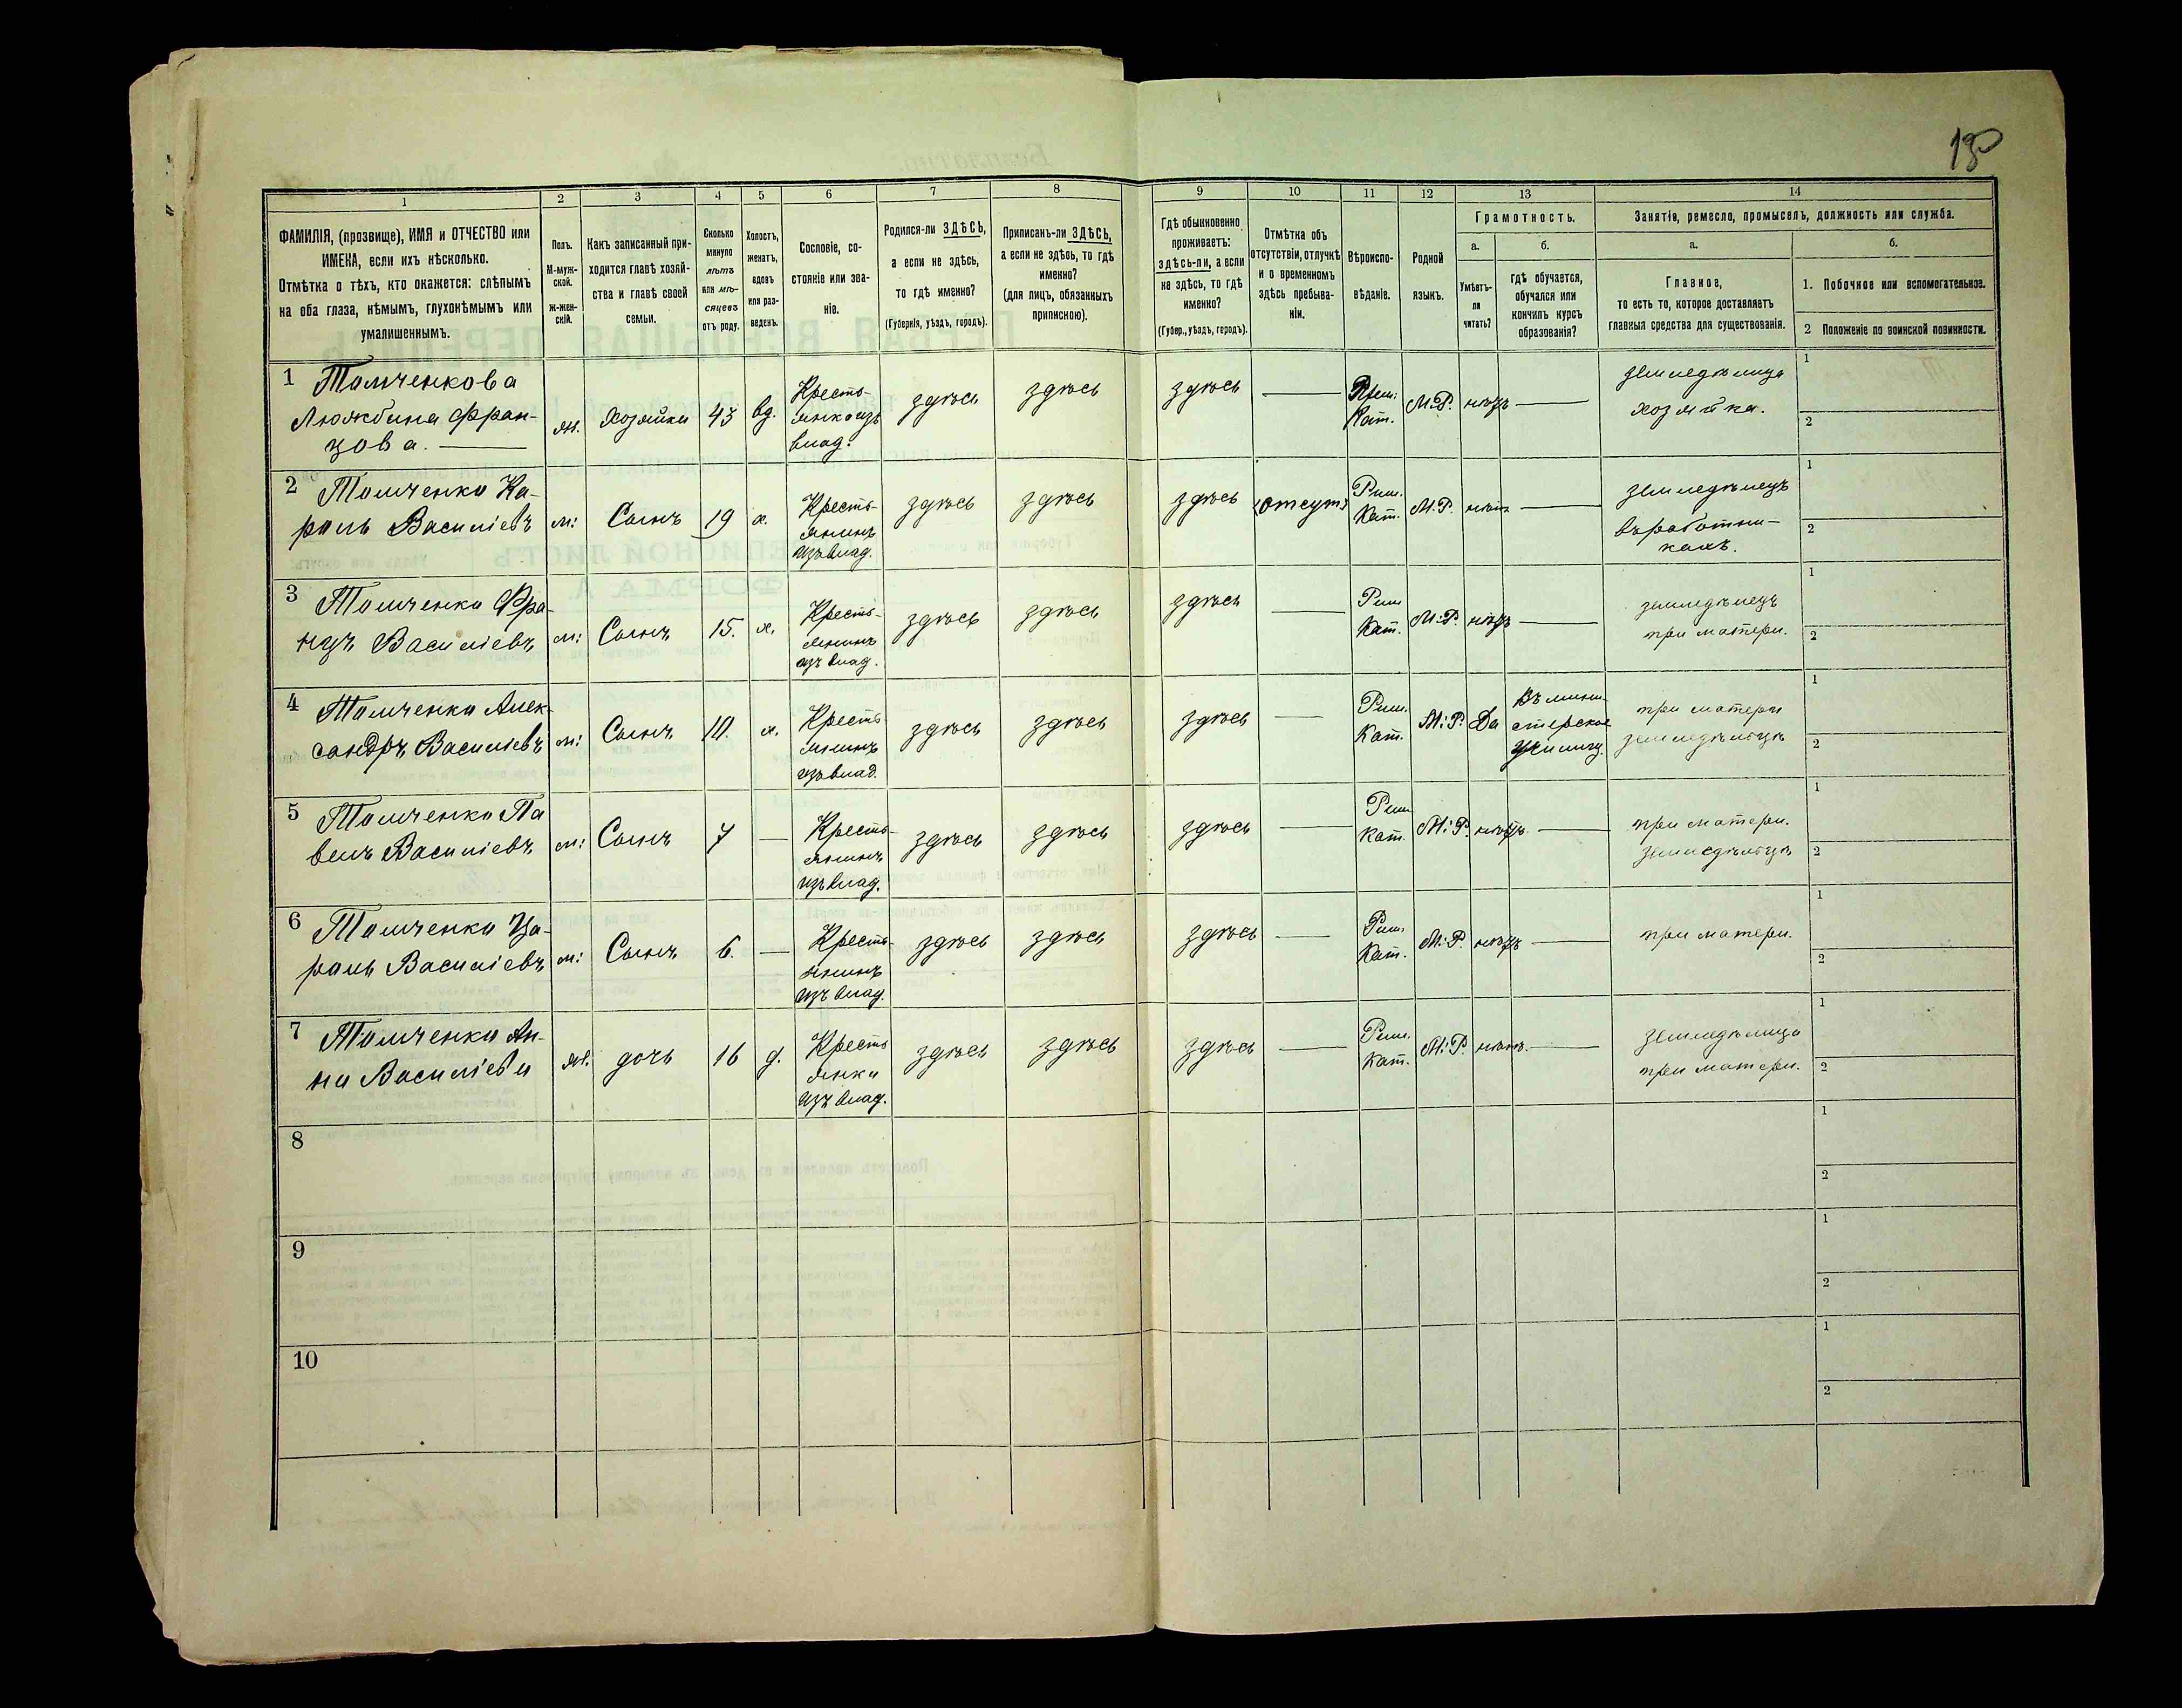 130
1 2 3 4 5 6 7 8 9 10 11 12 13 14
ФАМИЛІЯ, (прозвище), ИМЯ и ОТЧЕСТВО или
ИМЕНА, если ихъ нѣсколько.
Отмѣтка о тѣхъ, кто окажется: слѣпымъ
на оба глаза, нѣмымъ, глухонѣмымъ или
умалишеннымъ.
Полъ.
М-муж-
ской.
Ж-жен-
скій.
Какъ записанный при-
ходится главѣ хозяй-
ства и главѣ своей
семьи.
Сколько
минуло
лѣтъ
или мѣ-
сяцевъ
отъ роду.
Холостъ,
женатъ,
вдовъ
или раз-
веденъ.
Сословіе, со-
стояніе или зва-
ніе.
Родился-ли ЗДѢСЬ,
а если не здѣсь,
то гдѣ именно?
(Губернія, уѣздъ, городъ).
Приписанъ-ли ЗДѢСЬ,
а если не здѣсь, то гдѣ
именно?
(для лицъ, обязанныхъ
припискою).
Гдѣ обыкновенно
проживаетъ:
здѣсь-ли, а если
не здѣсь, то гдѣ
именно?
(Губер., уѣздъ, городъ).
Отмѣтка объ
отсутствіи, отлучкѣ
и о временномъ
здѣсь пребыва-
ніи.
Вѣроиспо-
вѣданіе.
Родной
языкъ.
Грамотность.
а.
Умѣетъ-
ли
читать?
б.
гдѣ обучается,
обучался или
кончилъ курсъ
образованія?
Занятія, ремесло, промыселъ, должность или служба.
а.
Главное,
то есть то, которое доставляетъ
главныя средства для существованія.
б.
1. Побочное или вспомогательное.
2 Положеніе по воинской повинности.
1 Томченкова
Люжбина Фран-
цова.
ж.
Хозяйка
43
вд.
Кресть-
янка изъ
влад.
здѣсь
здѣсь
здѣсь
Рим.
Кат.
М.Р.
нѣтъ
земледѣлица
хозяйка.
1
2
2 Томченко Ка-
роль Василіевъ
м:
Сынъ
19
х.
Кресть-
янинъ
изъ влад.
здѣсь
здѣсь
здѣсь
отсут:
Рим.
Кат.
М.Р.
нѣтъ
земледѣлецъ
въ работни-
кахъ.
1
2
3 Томченко Фра-
нцъ Василіевъ
м:
Сынъ
15.
х.
Кресть-
янинъ
изъ влад.
здѣсь
здѣсь
здѣсь
Рим
Кат.
М:Р.
нѣтъ
земледѣлецъ
при матери.
1
2
4 Томченко Алек-
сандръ Василіевъ
м:
Сынъ
10.
х.
Кресть
янинъ
изъ влад.
здѣсь
здѣсь
здѣсь
Рим.
Кат.
М:Р.
Да
Въ мини-
стерское
училищ.
при матери
земледѣльцѣ
1
2
5 Томченко Па
велъ Василіевъ
м:
Сынъ
7
Кресть-
янинъ
изъ влад.
здѣсь
здѣсь
здѣсь
Рим
Кат.
М:Р.
нѣтъ.
при матери.
земледѣльцѣ
1
2
6 Томченко Ка-
роль Василіевъ
м:
Сынъ
6.
Кресть-
янинъ
изъ влад.
здѣсь
здѣсь
здѣсь
Рим.
Кат.
М:Р.
нѣтъ
при матери.
1
2
7 Томченко Ан-
на Василіева
ж.
дочь
16
д.
Кресть
янка
изъ влад.
здѣсь
здѣсь
здѣсь
Рим.
Кат.
М:Р.
нѣтъ.
земледѣлица
при матери.
1
2
8
1
2
9
1
2
10
1
2